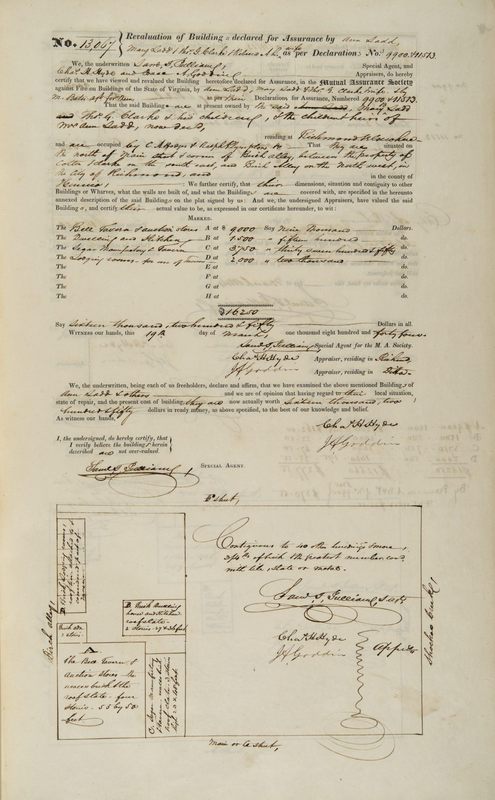 No. 13,067
Revaluation of Buildings declared for Assurance by Ann Ladd,
Mary Ladd & Thos. G. Clarke & wife as per Declarations No. 9900 & 11513.
We, the underwritten Saml. S. Gilliam, Special Agent, and
Chas. H. Hyde and Goddin Appraisers, do hereby
certify that we have viewed and revalued the Building heretofore declared for Assurance, in the Mutual Assurance Society
against Fire on Buildings of the State of Virginia, by Ann Ladd, Mary Ladd & Thos. G. Clarke & wife by
as per their Declarations for Assurance, Numbered 9900 & 11513.
That the said Buildings are at present owned by the said Mary Ladd
and Thos. G. Clarke & his children, & the children heirs of
Mrs. Ann Ladd, now dec'd,
residing at Richmond
and are occupied by That they are situated on
the north of Main street & corner of Birch alley, between the property of
on the south east, and Birch Alley on the North west, in
the City of Richmond, and in the county of
Henrico; We further certify, that their dimensions, situation and contiguity to other
Buildings or Wharves, what the walls are built of, and what the Buildings are covered with, are specified in the hereunto
annexed description of the said Buildings on the plat signed by us: And we, the undersigned Appraisers, have valued the said
Buildings, and certify their actual value to be, as expressed in our certificate hereunder, to wit:
MARKED.
The Bell Tavern & auction stores A at $ 9000 Say Nine thousand Dollars.
The Dwelling and Kitchen B at 1.500 " fifteen hundred do.
The Segar Manufactory & Tavern C at 3.750 " thirty seven hundred & fifty do.
The Lodging rooms for use of tavern D at 2.000 " two thousand do.
The E at do.
The F at do.
The G at do.
The H at do.
$16250
Say Sixteen thousand, two hundred & fifty Dollars in all.
Witness our hands, this 19th day of one thousand eight hundred and forty four
Saml. S. Gilliam, Special Agent for the M. A. Society.
Chas. H. Hyde Appraiser, residing in Richmd.
Goddin Appraiser, residing in Ditto.
We, the underwritten, being each of us freeholders, declare and affirm, that we have examined the above mentioned Buildings of
Ann Ladd & others and we are of opinion that having regard to their local situation,
state of repair, and the present cost of building, they are now actually worth Sixteen thousand, two
hundred & fifty dollars in ready money, as above specified, to the best of our knowledge and belief.
As witness our hands,
Chas. H. Hyde
Goddin
I, the undersigned, do hereby certify, that
I verily believe the buildings herein
described are not over-valued.
Saml. S. Gilliam, Special Agent.
E street,
D. Brick
B. Brick dwelling
house and Kitchen
roof slate
2 stories
A
The Bell Tavern &
auction stores
brick & the
roof slate - four
stories - 55 by 50
feet
C. Segar Manufactory
Contiguous to no other buildings
of which the greatest number cov'd
with tile, slate or metal.
Saml. S. Gilliam, S. Agt.
Chas. H. Hyde
Goddin
Appr's
Birch alley,
Main or E street,